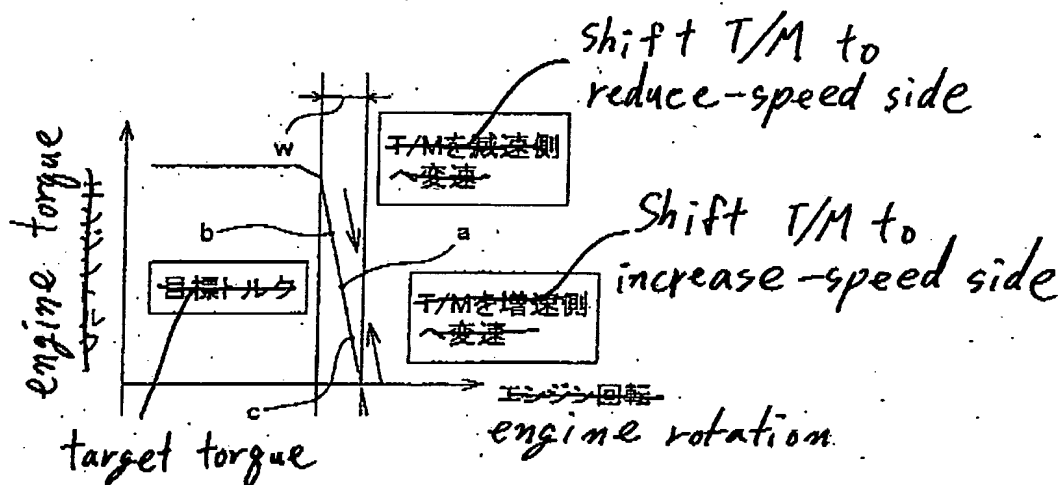 shift T/M to
reduce-speed side
w
T/Mを減速側
へ変速
engine torque
エンジントルク
b
a
Shift T/M to
increase-speed side
目標トルク
T/Mを増速側
へ変速
c
エンジン回転
engine rotation
target torque